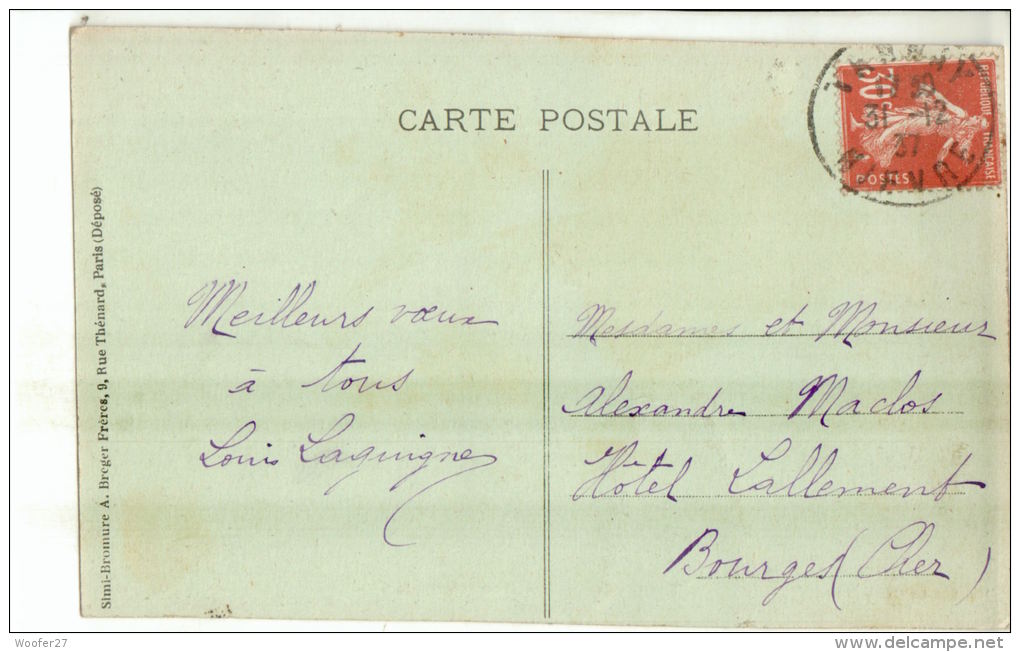 CARTE POSTALE
30c
RÉPUBLIQUE FRANÇAISE
POSTES
31 -12
37
NIÈVRE
Meilleurs vœux
à tous
Louis Laguigne
Mesdames et Monsieur
Alexandre Maclos
Hôtel Lallement
Bourges (Cher)
Simi-Bromure A. Breger Frères, 9, Rue Thénard, Paris (Déposé)
Woofer27
www.delcampe.net